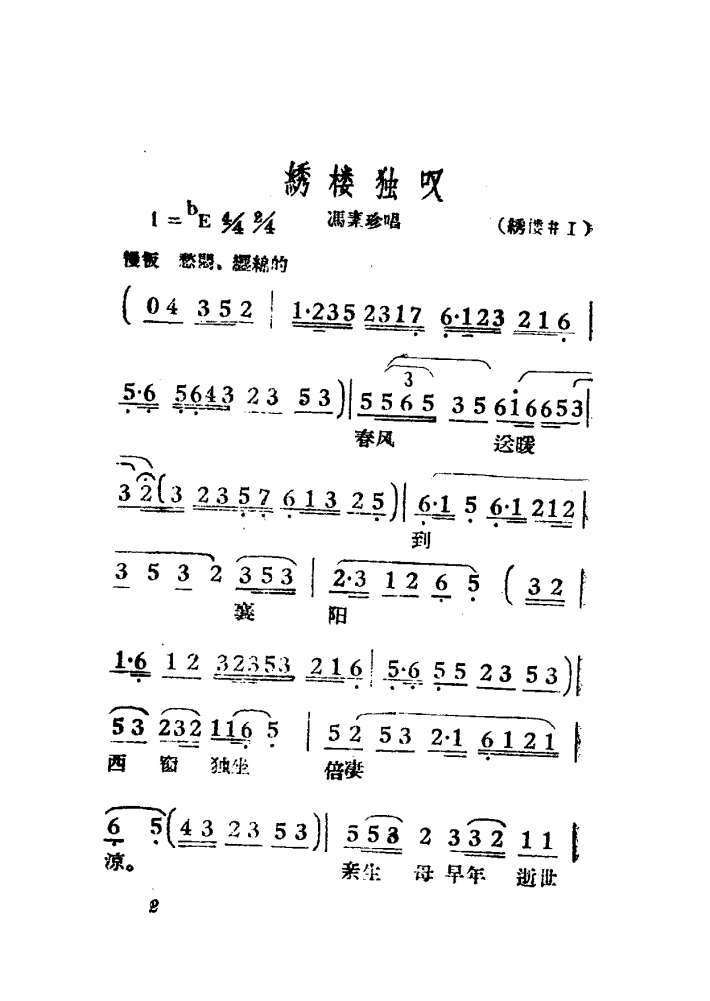 綉楼独叹
1=♭E 4/4 2/4 馮素珍唱 (綉楼井I)
慢板 愁悶、纒綿的
(04 352 | 1·235 2317 6·123 216 |
5·6 5643 23 53)| 5565 35 616653 |
3
春风 送暖
32(3 2357 613 25)| 6·1 5 6·1 212 |
到
3 5 3 2 353 | 2·3 12 6 5 (32 |
襄 阳
1·6 12 32353 216 | 5·6 55 23 53)|
53 232 116 5 | 52 53 2·1 6121 |
西 窗 独坐 倍凄
6 5(43 23 53)| 553 2 332 11 |
凉。 亲生 母 早年 逝世
2